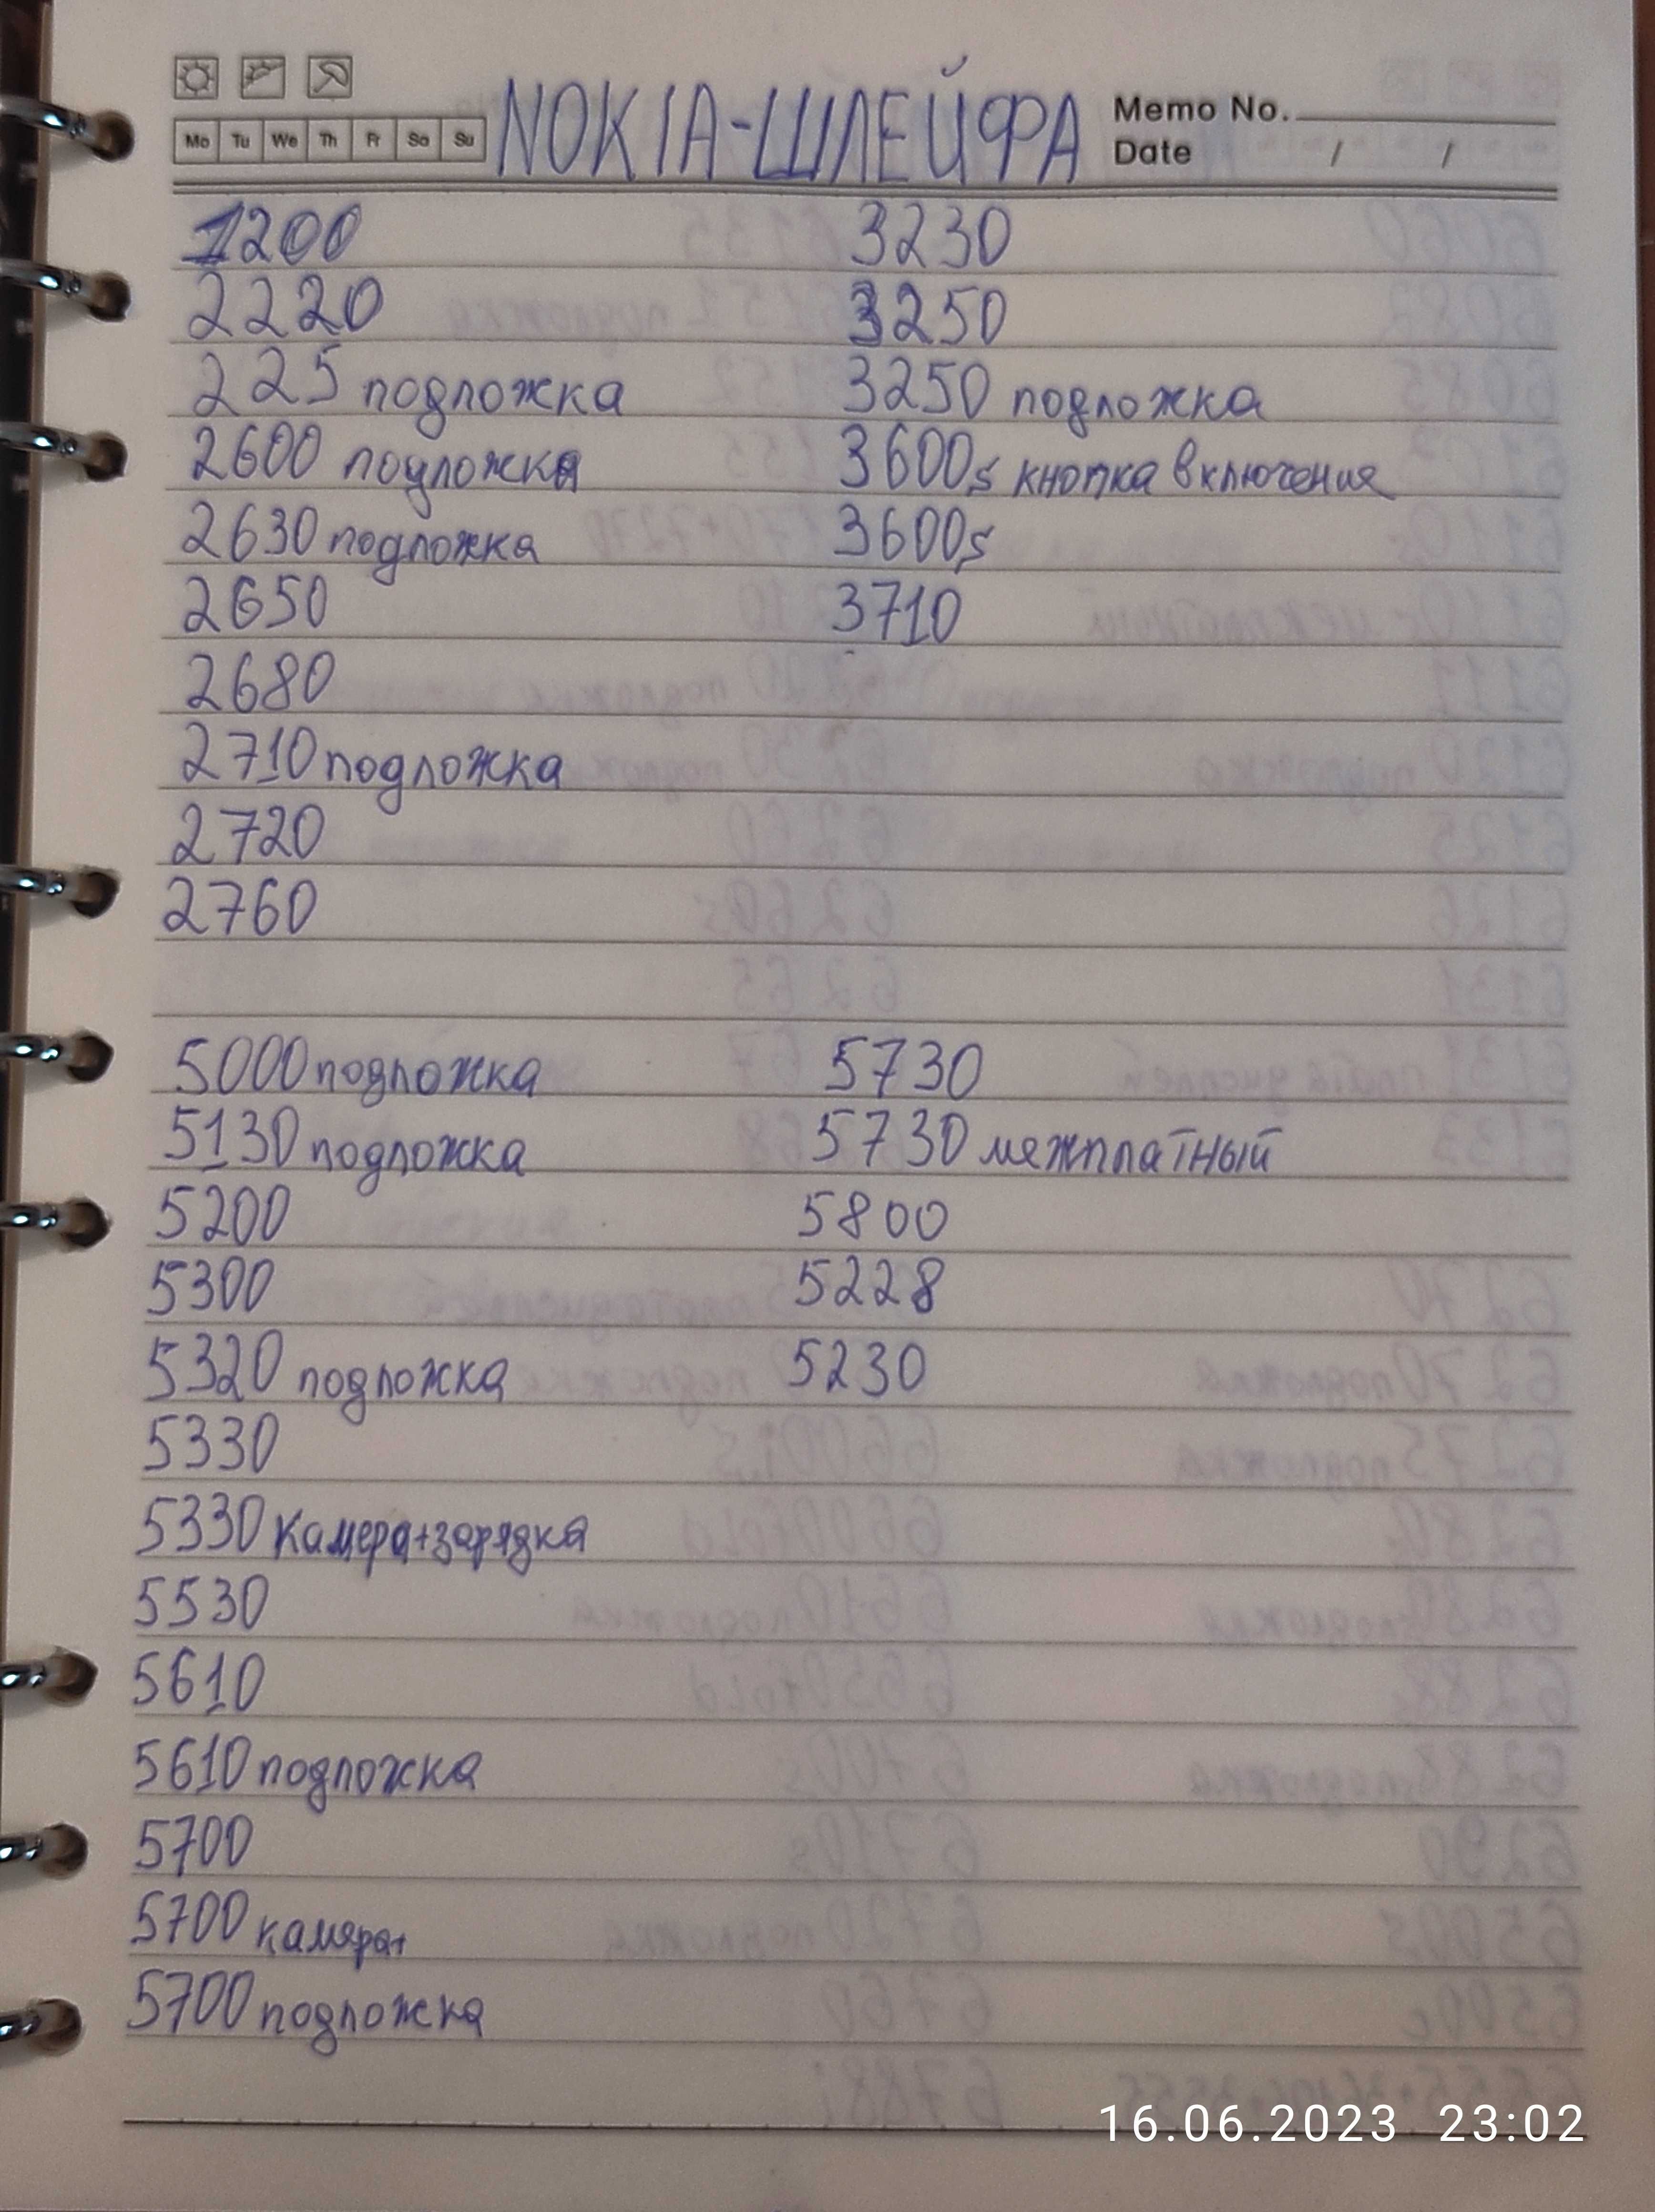 NOKIA-ШЛЕЙФА
Memo No.
Mo Tu We Th Fr Sa Su
Date / /
1200 3230
2220 3250
225 подложка 3250 подложка
2600 подложка 3600s кнопка включения
2630 подложка 3600s
2650 3710
2680
2710 подложка
2720
2760
5000 подложка 5730
5130 подложка 5730 межплатный
5200 5800
5300 5228
5320 подложка 5230
5330
5330 камера+зарядка
5530
5610
5610 подложка
5700
5700 камера
5700 подложка
16.06.2023 23:02